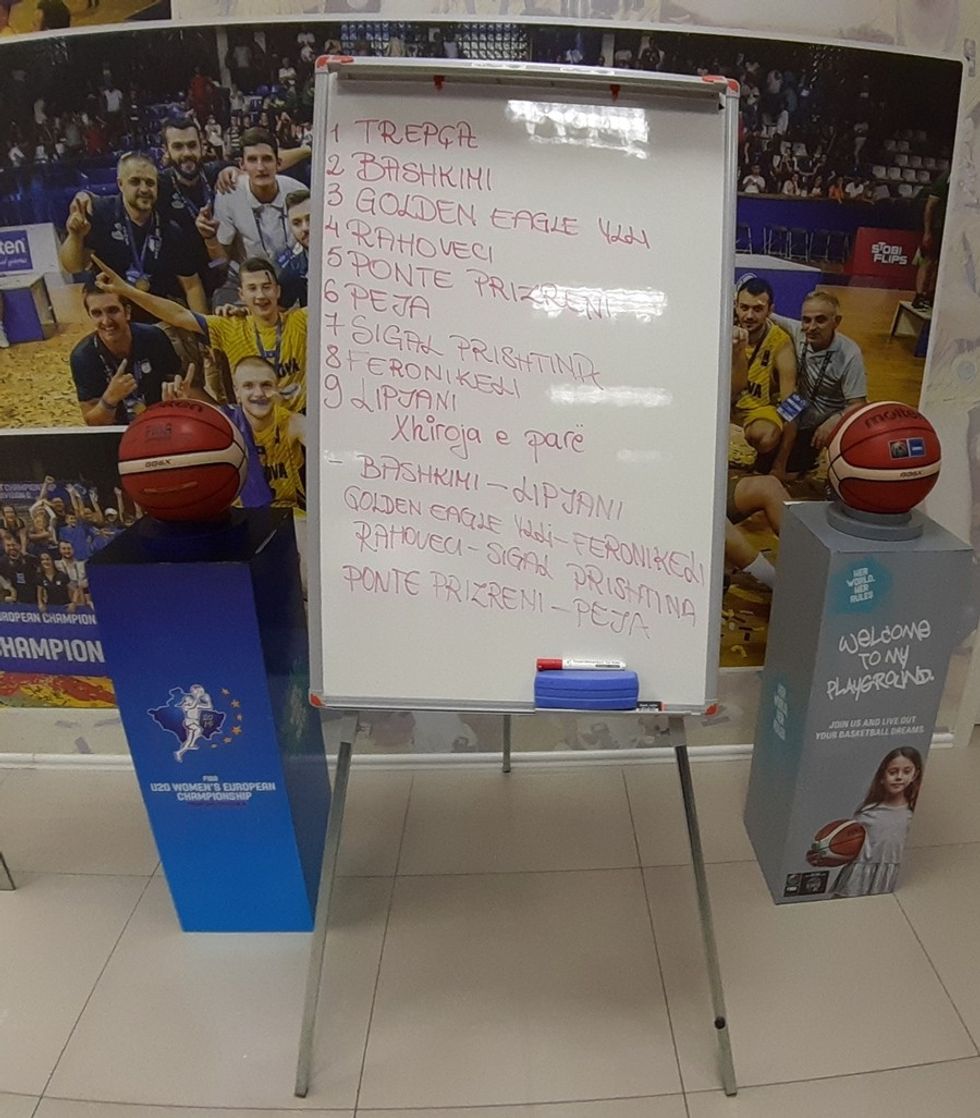 1 TREPÇA
2 BASHKIMI
3 GOLDEN EAGLE Ylli
4 RAHOVECI
5 PONTE PRIZRENI
6 PEJA
7 SIGAL PRISHTINA
8 FERONIKELI
9 LIPJANI
Xhiroja e parë
- BASHKIMI - LIPJANI
GOLDEN EAGLE Ylli - FERONIKELI
RAHOVECI - SIGAL PRISHTINA
PONTE PRIZRENI - PEJA
STOBI
FLIPS
molten
GG6X
GG6X
EUROPEAN CHAMPION
CHAMPION
FIBA
U20 WOMEN'S EUROPEAN
CHAMPIONSHIP
HER
WORLD.
HER
RULES
WELCOME
TO MY
PLAYGROUND.
JOIN US AND LIVE OUT
YOUR BASKETBALL DREAMS